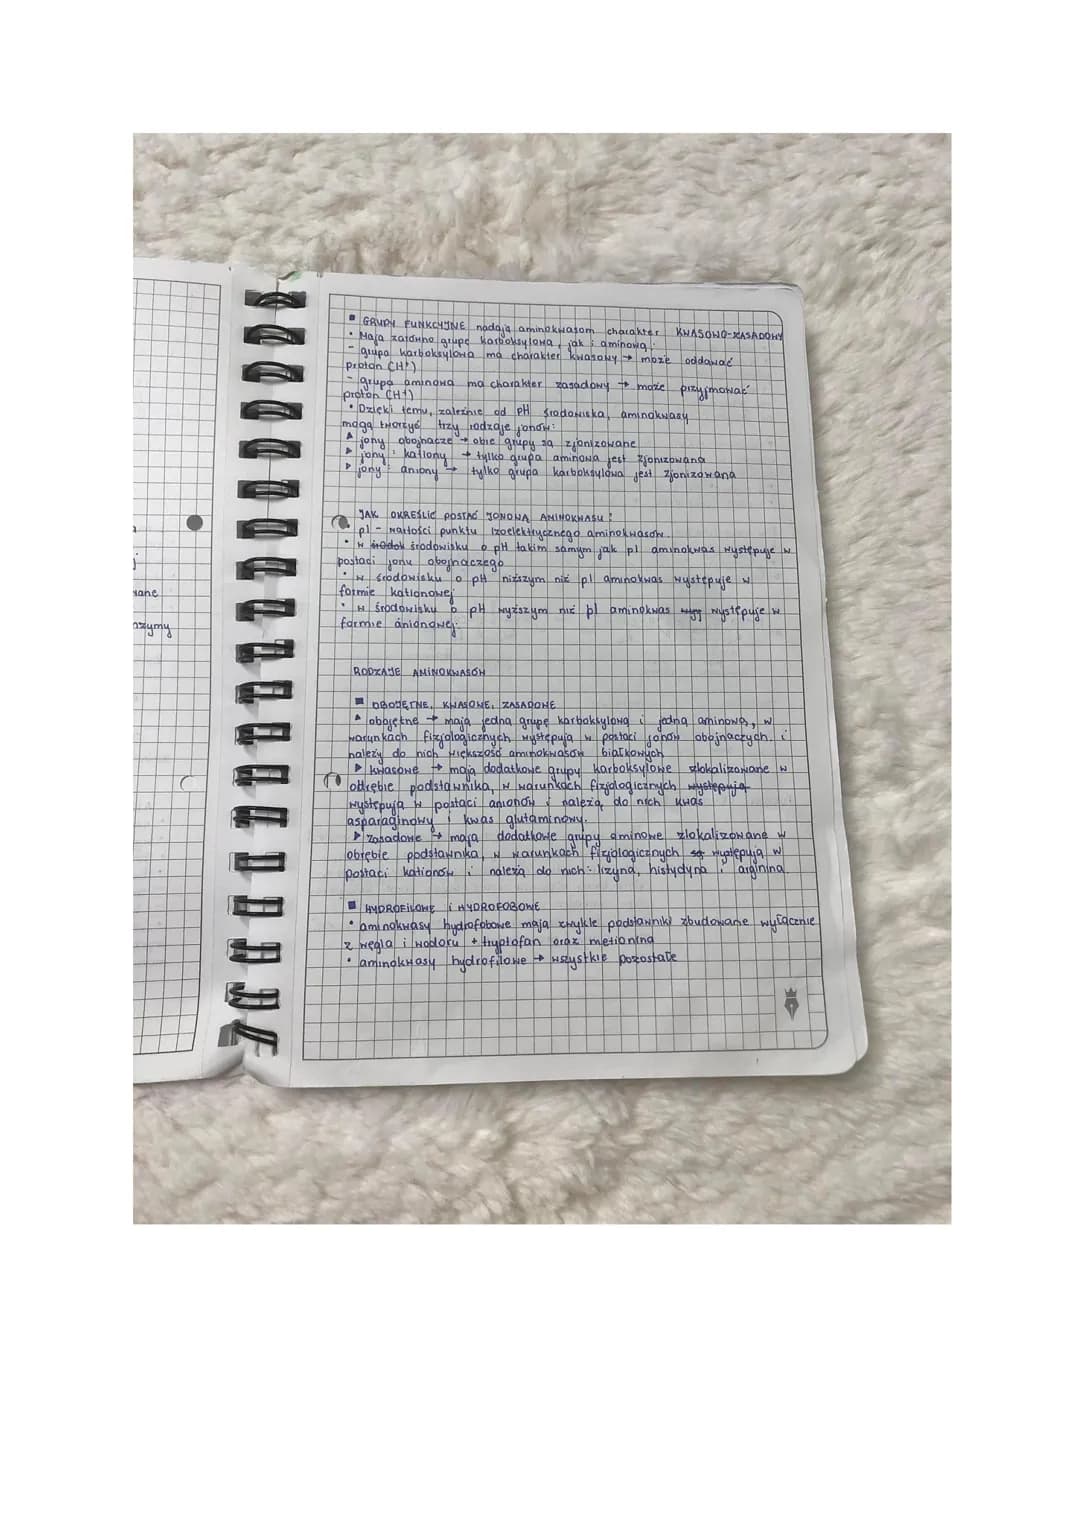 ▪ GRUPY FUNKCYJNE nadają aminokwasom charakter KWASOWO-ZASADOWY
• Mają zarówno grupę karboksylową, jak i aminową:
- grupa karboksylowa ma charakter kwasowy → może oddawać
proton (H⁺)
- grupa aminowa ma charakter zasadowy → może przyjmować
proton (H⁺)
• Dzięki temu, zależnie od pH środowiska, aminokwasy
mogą tworzyć trzy rodzaje jonów:
▸ jony obojnacze → obie grupy są zjonizowane
▸ jony: kationy → tylko grupa aminowa jest zjonizowana
▸ jony: aniony → tylko grupa karboksylowa jest zjonizowana
JAK OKREŚLIĆ POSTAĆ JONOWĄ AMINOKWASU?
pI - wartości punktu izoelektrycznego aminokwasów.
• w środowisku o pH takim samym jak pI aminokwas występuje w
postaci jonu obojnaczego
• w środowisku o pH niższym niż pI aminokwas występuje w
formie kationowej
• w środowisku o pH wyższym niż pI aminokwas występuje w
formie anionowej.
RODZAJE AMINOKWASÓW
▪ OBOJĘTNE, KWASOWE, ZASADOWE
▸ obojętne → mają jedną grupę karboksylową i jedną aminową, w
warunkach fizjologicznych występują w postaci jonów obojnaczych i
należy do nich większość aminokwasów białkowych
▸ kwasowe → mają dodatkowe grupy karboksylowe zlokalizowane w
obrębie podstawnika, w warunkach fizjologicznych występują
występują w postaci anionów i należą do nich kwas
asparaginowy i kwas glutaminowy.
▸ zasadowe → mają dodatkowe grupy aminowe zlokalizowane w
obrębie podstawnika, w warunkach fizjologicznych są występują w
postaci kationów i należą do nich: lizyna, histydyna i arginina.
▪ HYDROFILOWE i HYDROFOBOWE
• aminokwasy hydrofobowe mają zwykle podstawniki zbudowane wyłącznie
z węgla i wodoru + tryptofan oraz metionina
• aminokwasy hydrofilowe → wszystkie pozostałe